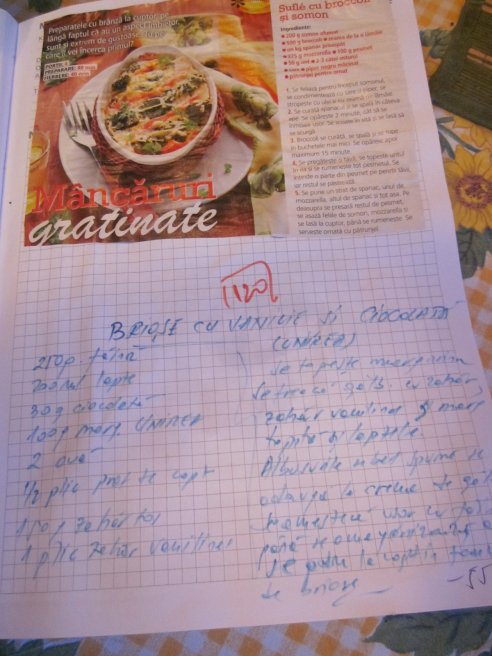 Preparatele cu brânză la cuptor, pe
lângă faptul că au un aspect
sunt și extrem de gustoase.
care o vei încerca primul?
PORȚII:
PREPARARE: 40 min
Mâncăruri
gratinate
Suflé cu broccoli
și somon
Ingrediente:
200 g somon afumat
500 g broccoli
un kg spanac proaspăt
375 g mozzarella 100 g pesmet
50 g unt
sare piper negru măcinat
pătrunjel pentru ornat
1. Se feliază pentru început somonul,
se condimentează cu sare și piper, se
stropește cu ulei și cu zeamă de lămâie
2. Se curăță spanacul și se spală în câteva
ape. Se opărește 2 minute, cât să se
înmoaie ușor. Se scoate în sită și se lasă să
se scurgă.
3. Broccoli se curăță, se spală și se rupe
în buchețele mai mici. Se opăresc apoi
maximum 15 minute.
4. Se pregătește o tavă, se topește untul
în ea și se rumenește tot pesmetul. Se
întinde o parte din pesmet pe pereții tăvii,
iar restul se păstrează.
5. Se pune un strat de spanac, unul de
mozzarella, altul de spanac și tot așa. Pe
deasupra se presară restul de pesmet,
se așază feliile de somon, mozzarella și
se lasă la cuptor, până se rumenește. Se
servește ornată cu pătrunjel.
1120
BRIOȘE CU VANILIE ȘI CIOCOLATĂ
(UNIREA)
250g făină
200ml lapte
30g ciocolată
100g marg. UNIREA
2 ouă
1/2 plic praf de copt
150g zahăr tos
1 plic zahăr vanilinat
Se topește margarina
Se freacă gălb. cu zahăr,
zahăr vanilinat și marg
topită și laptele.
Albușurile
adaugă la crema de
amestecă ușor cu
până se omogenizează
se pune la copt în
de brioșe
-55